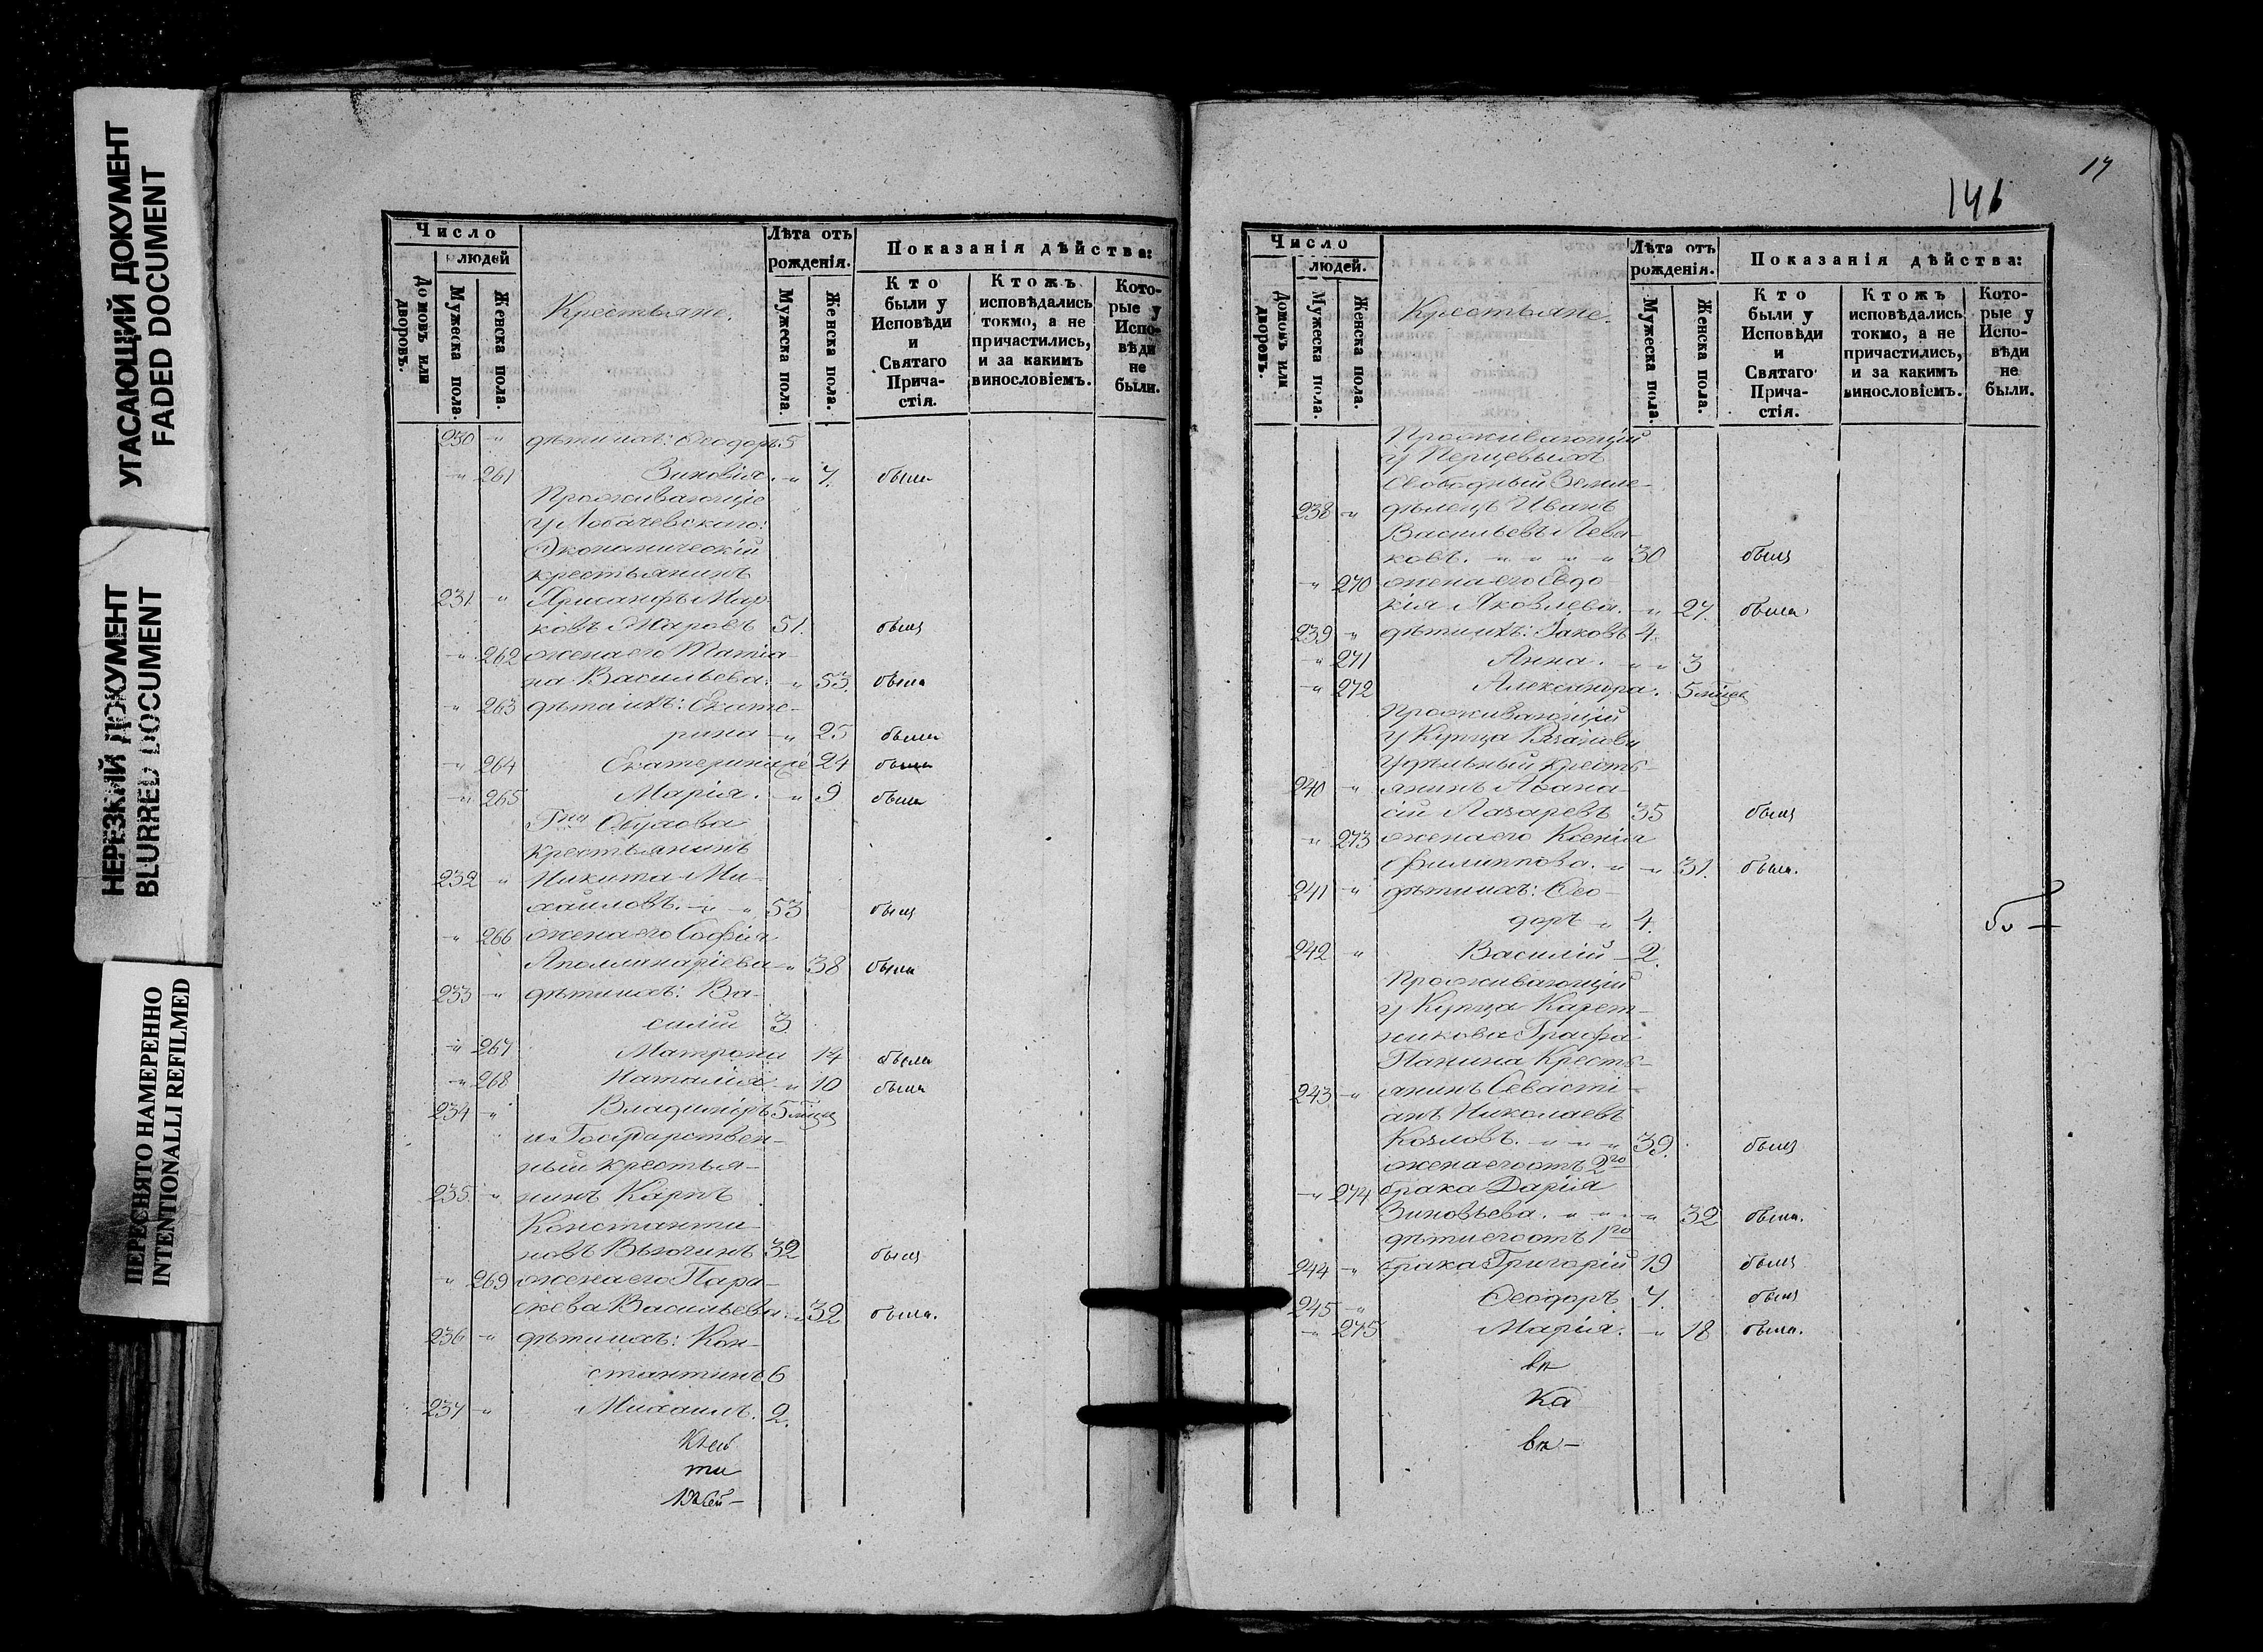 УГАСАЮЩИЙ ДОКУМЕНТ
FADED DOCUMENT
НЕРЕЗКИЙ ДОКУМЕНТ
BLURRED DOCUMENT
ПЕРЕСНЯТО НАМЕРЕННО
INTENTIONALLI REFILMED
Число
людей
Домовъ или дворовъ.
Мужеска пола.
Женска пола.
Крестьяне.
Лѣта отъ рожденія.
Мужеска пола.
Женска пола.
Показанія дѣйства:
Кто были у Исповѣди и Святаго Причастія.
Ктожъ исповѣдались токмо, а не причастились, и за какимъ винословіемъ.
Которые у Исповѣди не были.
230 " дѣти ихъ: Ѳеодоръ 5
" 261 Зиновія. " 7. была
Проживающіе
у Лобачевскаго:
Экономическій
крестьянинъ
231 " Хрисанфъ Мар-
ковъ Жаровъ 51. былъ
" 262 жена его Татіа-
на Васильева. " 53. была
" 263 дѣти ихъ: Екате-
рина " 25 была
" 264 Екатерина 24 была
" 265 Марія. " 9 была
крестьянинъ
232 " Никита Ми-
хаиловъ. " " 53 былъ
" 266 жена его Софія
Аполлинаріева " 38 была
233 " дѣти ихъ: Ва-
силій 3
" 267 Матрона 14 была
" 268 Наталія " 10 была
234 " Владиміръ 5 мѣсц
Государствен-
ный крестья-
235 " нинъ Карпъ
Константи-
новъ 32 былъ
" 269 жена его Пара-
скева Васильева. " 32 была.
236 " дѣти ихъ: Кон-
стантинъ 6
237 " Михаилъ. 2.
17
146
Число
людей.
Домовъ или дворовъ.
Мужеска пола.
Женска пола.
Крестьяне.
Лѣта отъ рожденія.
Мужеска пола.
Женска пола.
Показанія дѣйства:
Кто были у Исповѣди и Святаго Причастія.
Ктожъ исповѣдались токмо, а не причастились, и за какимъ винословіемъ.
Которые у Исповѣди не были.
Проживающій
у Перцевыхъ
Свободный Земле-
238 " дѣлецъ Иванъ
Васильевъ Лева-
ковъ. " " " " 30 былъ
" 270 жена его Евдо-
кія Яковлева. " 27. была
239 " дѣти ихъ: Іаковъ 4.
" 271 Анна. " " 3
" 272 Александра. 5 мѣсц
Проживающій
у Купца
Удѣльный кресть-
240 " янинъ Аѳана-
сій Лазаревъ 35 былъ
" 273 жена его Ксенія
Филиппова. " " 31. была.
241 " дѣти ихъ: Ѳео-
доръ " 4.
242 " Василій 2.
Проживающій
у Купца Карет-
никова Графа
Панина Кресть-
243 " янинъ Севасті-
анъ Николаевъ
Козловъ. " " " 39. былъ
жена его отъ 2го
" 274 брака Дарія
Зиновьева. " " " 32 была.
дѣти его отъ 1го
244 " брака Григорій 19 былъ
245 " Ѳеодоръ 7. былъ
" 275 Марія. " 18 была.